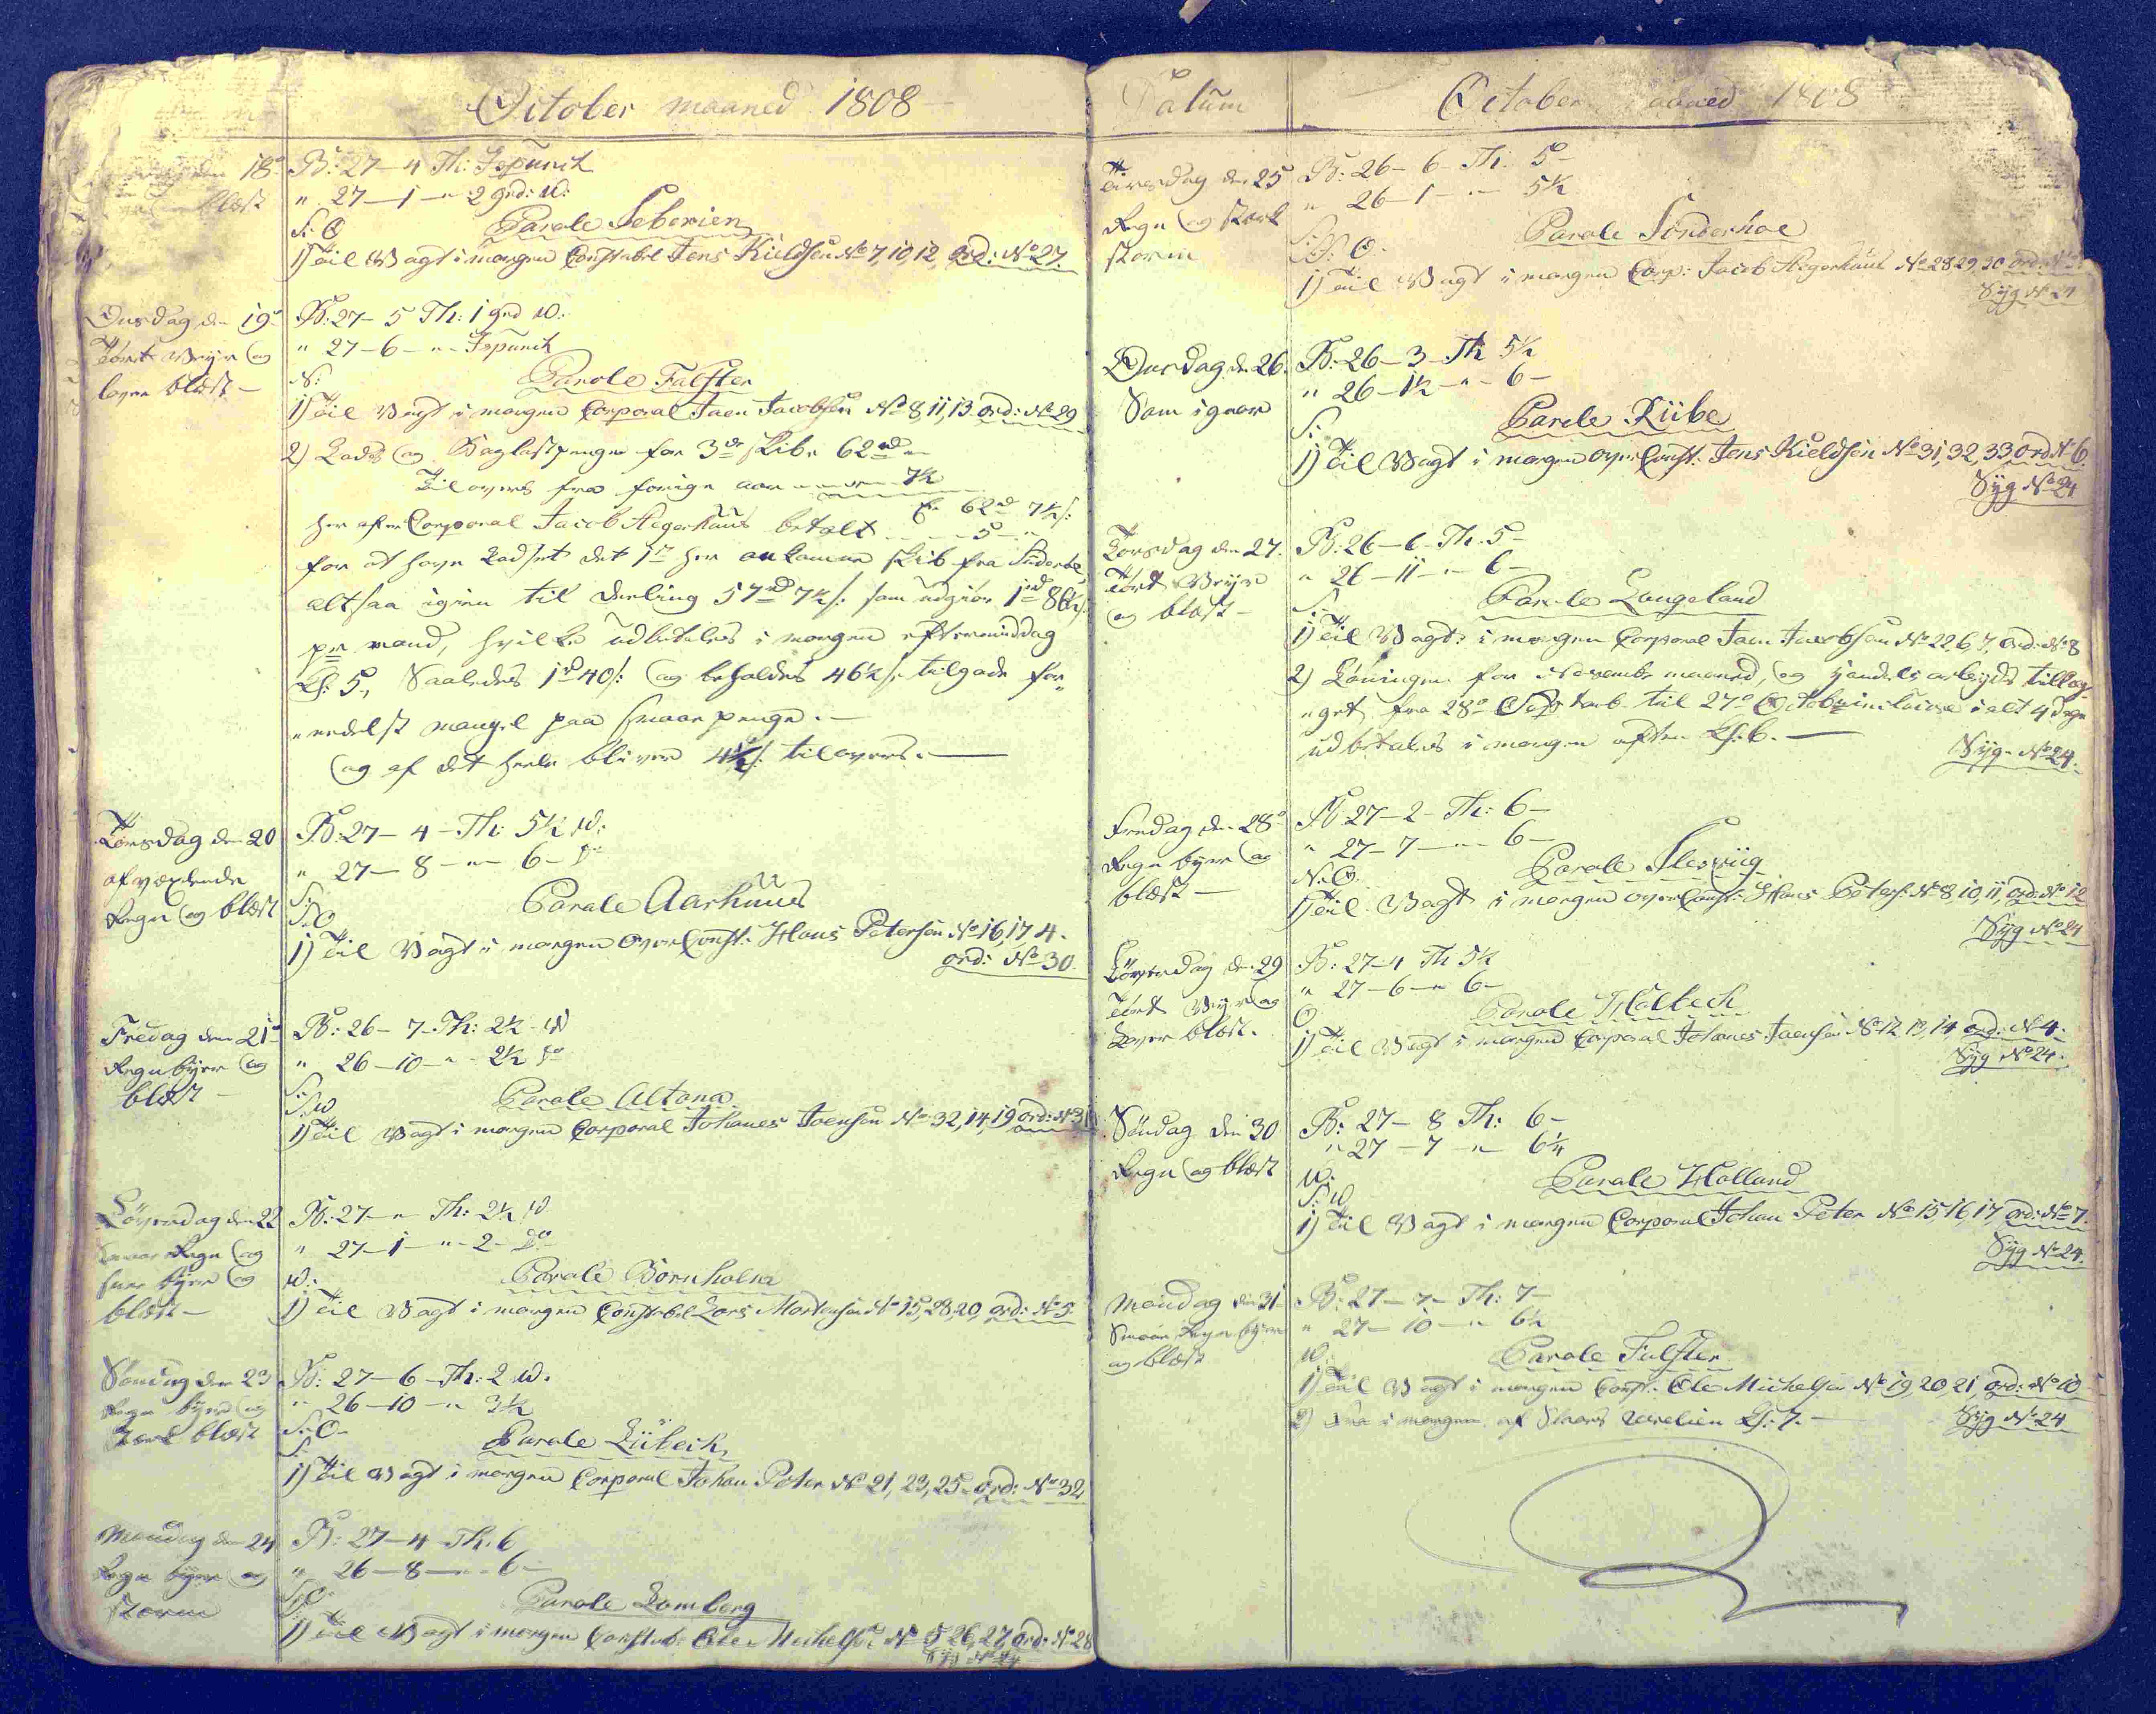 October maaned 1808
18de B: 27-4 Th: Ispunct
blæst " 27-1-"-2 grd: W:
S: O Parole Seberien
1) Til Vagt i morgen Constabel Jens Kieldsen No 7, 10, 12, Ord: No 27.
Onsdag den 19de B: 27-5 Th: 1 grd W:
Tørt Veyr og " 27-6-"- Ispunct
blæst - N: Parole Falster
1) Til Vagt i morgen Corporal Joen Jacobsen No 8, 11, 13 Ord: No 29
2) Lods og Baglastpenge for 3de Skibe 62rd "
Tilovers fra forige aar 7½
62rd 7½s:
her af er Corporal Jacob Aegerhuus betalt - - - 5 - "
for at have Lodset det 1te her ankomne Skib fra
altsaa igien til deeling 57rd 7½s: som udgiør 1rd
pr mand, hvilke udbetales i morgen eftermiddag
Kl: 5, Saaledes 1rd 40s: og beholdes 46½s: tilgode for-
"medelst mangel paa smaae penge.-
og af det heele bliver tilovers.-
Torsdag den 20 B: 27-4-Th: 5½ W:
afvexlende " 27-8-"-6-do
Regn og blæst S: Parole Aarhuus
S:O
1) Til Vagt i morgen OverConst: Hans Petersen No 16, 17, 4.
ord: No 30.
Fredag den 21de B: 26-7-Th: 2½ W
Regn byer og " 26-10-"-2½ do
blæst - S: Parole Altona
S:W
1) Til Vagt i morgen Corporal Johanes Joensen No 32, 14, 19 ord: No 31
Løverdag den 22 B: 27-"-Th: 2½ W
Regn og " 27-1-"-2-do
snee byer og W: Parole Bornholm
blæst - 1) Til Vagt i morgen Constabel Lars Mortensen No 15, 28, 20, ord: No 5
Søndag den 23 B: 27-6-Th: 2 W.
Regn byer og " 26-10-" 3½
Stærk blæst S:O- Parole Lübeck
S:
1) Til Vagt i morgen Corporal Johan Peter No 21, 23, 25 ord: No 32
Mandag den 24 B: 27-4-Th: 6
Regn byer og " 26-8-"-6-
storm S:O Parole Lomberg
1) Til Vagt i morgen Constab: Ole Michelsen No 5, 26, 27, Ord: No 28
Syg No 24
Datum October maaned 1808
Tirsdag den 25 B: 26-6-Th: 5-
Regn og stærk " 26-1-"-5½
storm S: Parole Sönderhoe
S:O.
1) Til Vagt i morgen Corp: Jacob Aegerhuus No 28, 29, 30 ord: No
Syg No 24
Onsdag den 26. B: 26-3-Th 5½
Som igaar " 26-1½-"-6-
S: Parole Riibe
1) Til Vagt i morgen OverConst: Jens Kieldsen No 31, 32, 33 ord No 6.
Syg No 24
Torsdag den 27. B: 26-6-Th: 5-
Tørt Veyr " 26-11-"-6-
og blæst - S: Parole Langeland
1) Til Vagt i morgen Corporal Joen Jacobsen No 22, 6, 7, Ord: No 8
2) Löningen for November maaned, og arbeyds tillæg-
"get fra 28de Septemb. til 27de Octob: inclusive i alt 4 dage
udbetales i morgen aften Kl: 6.-
Syg No 24.
Fredag den 28de B: 27-2-Th: 6-
Regn byer og " 27-7-"-6-
blæst - N:O. Parole Slesviig
1) Til Vagt i morgen OverConst: Hans Peters: No 8, 10, 11, ord: No 12
Syg No 24
Løverdag den 29 B: 27-4 Th 5½
Tørt Veyr og " 27-6-" 6-
blæst. O Parole Holbech
1) Til Vagt i morgen Corporal Johanes Joensen No 12, 13, 14 ord: No 4.
Syg No 24.
Søndag den 30 B: 27-8 Th: 6-
Regn og blæst " 27-7-" 6¼
W: Parole Holland
S:W
1) Til Vagt i morgen Corporal Johan Peter No 15, 16, 17, ord: No 7.
Syg No 24.
Mandag den 31 B: 27-7-Th: 7-
Smaae Regn byer " 27-10-" 6½
og blæst W: Parole Falster
1) Til Vagt i morgen Const: Ole Michelsen No 19, 20, 21, ord: No 10
2) i morgen af Kl: 7.-
Syg No 24